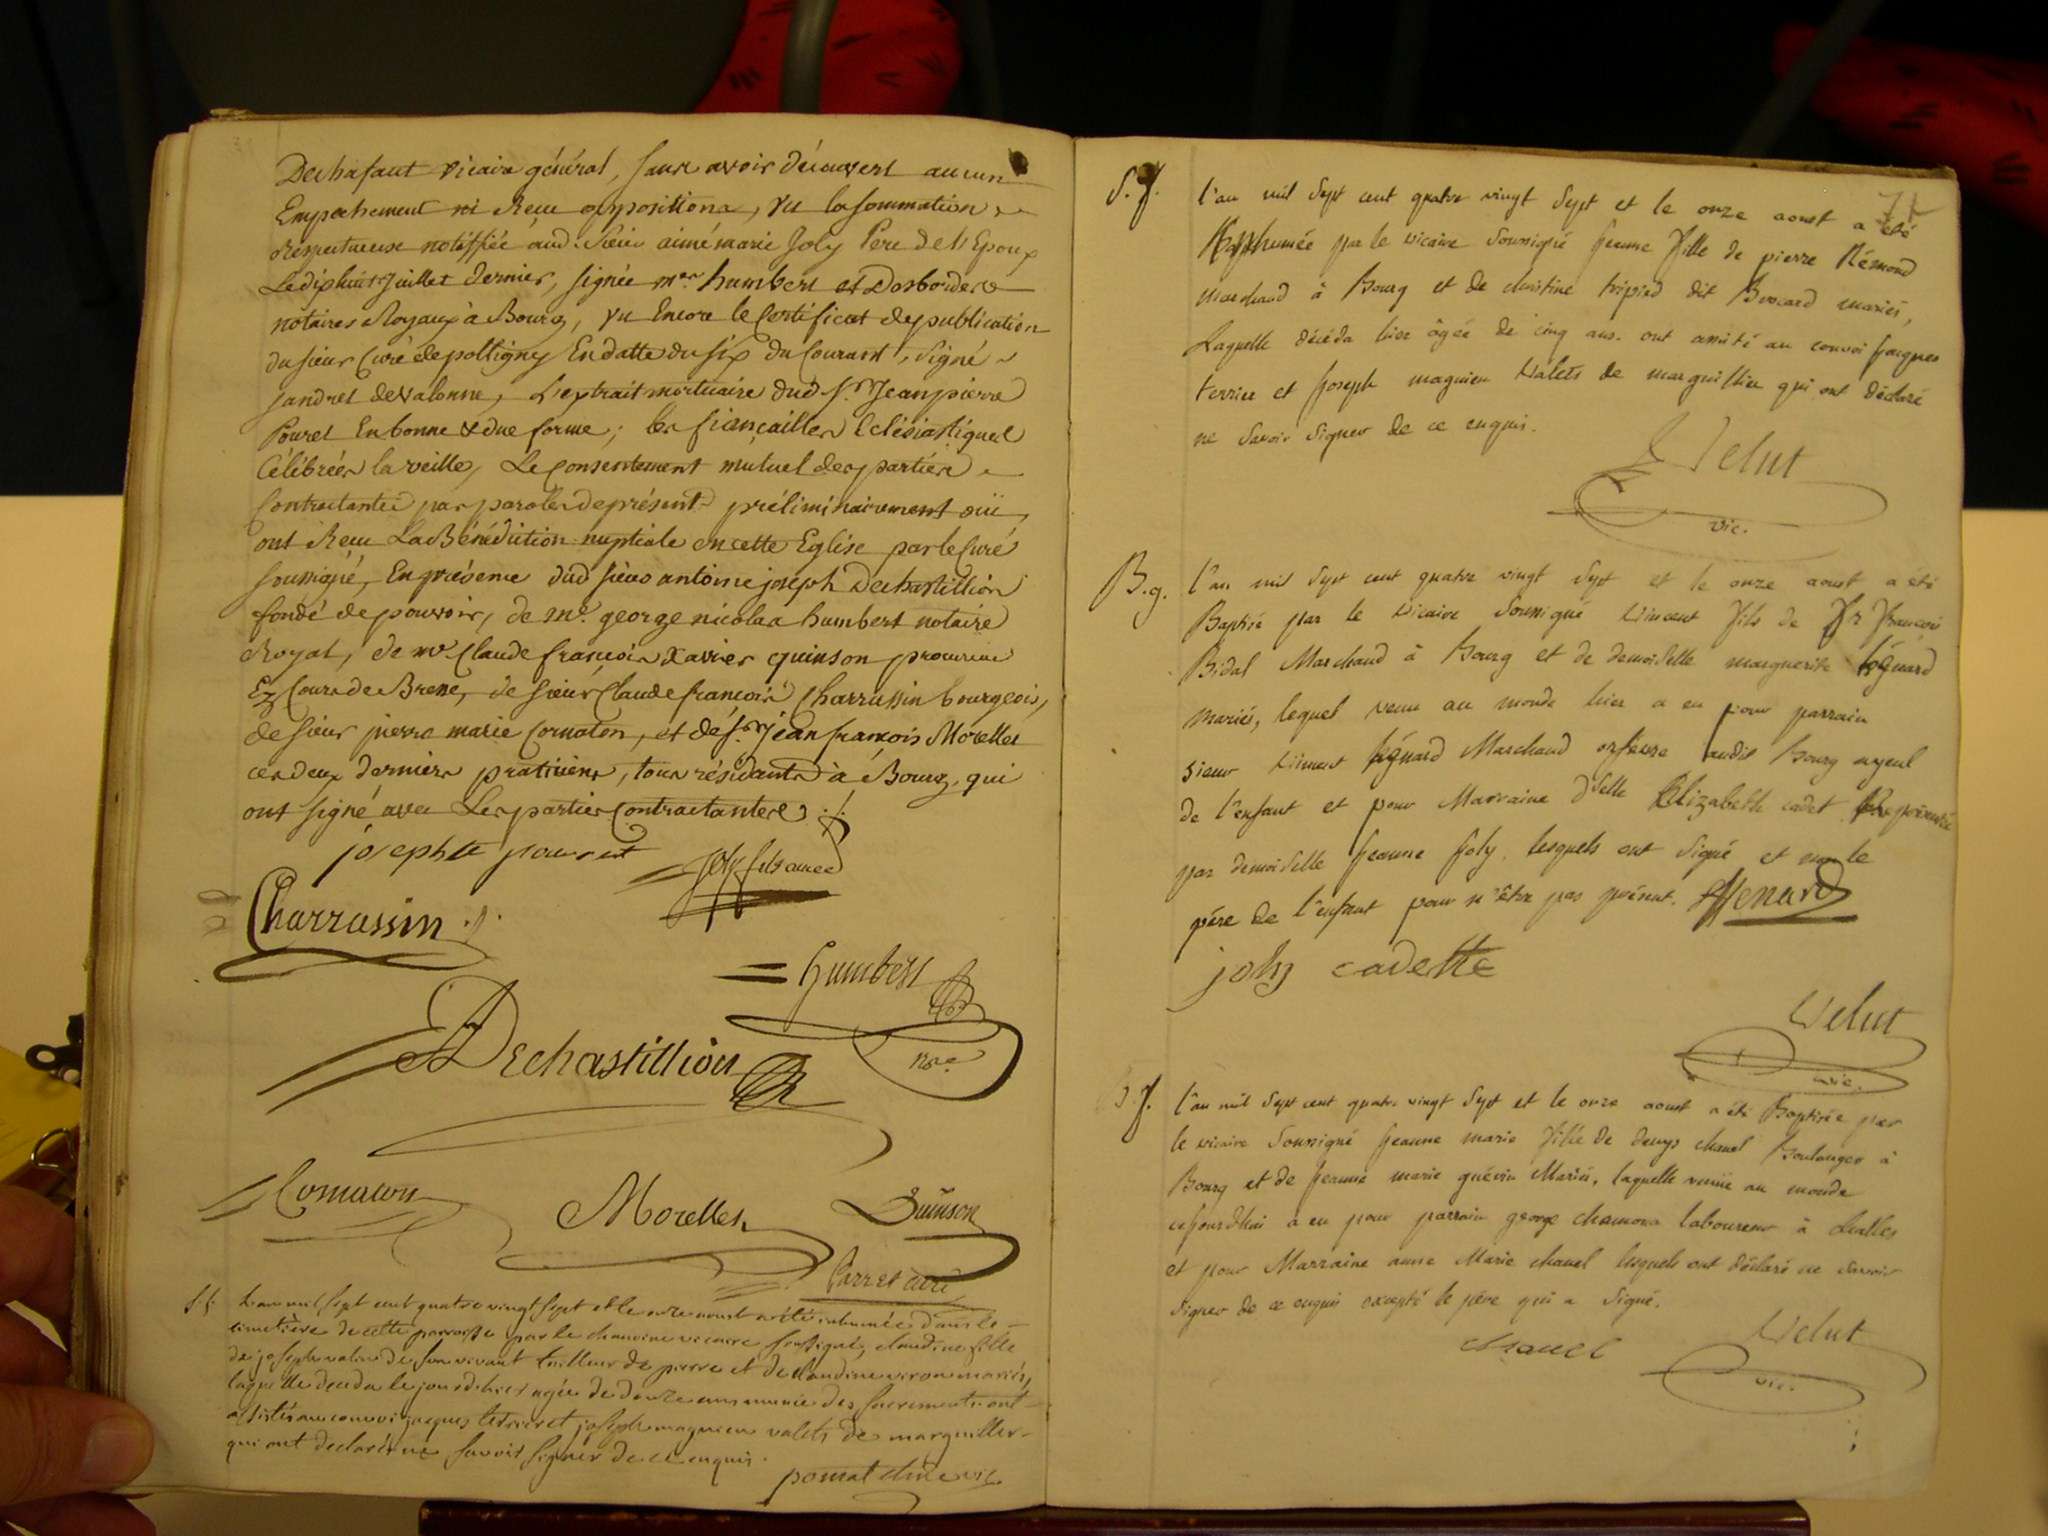 Dechafaut vicaire général, sans avoir découvert aucun
Empechement ni Reçu oppositions, vu la sommation
Respectueuse notiffiée aud. Sieur aimé marie Joly Pere de l'Epoux
Le dixhuit Juillet dernier, signée mes. humbert et Desbordes
notaires Royaux à Bourg, vu Encore le Certificat de publication
du sieur Curé de polligny En datte du six du Courant, Signé
jandret de valonne, L'extrait mortuaire dud sr. Jean pierre
Pouret En bonne & due forme; les fiançailles Eclésiastiques
Célébrées la veille, Le Consentement mutuel des parties
Contractantes par paroles de présent préliminairement ouï,
ont Reçu La Bénédiction nuptiale en cette Eglise par le Curé
soussigné, En présence dud sieur antoine joseph Dechastillion
fondé de pouvoir, de me. george nicolas humbert notaire
Royal, de me Claude françois Xavier quinson procureur
Ez Cours de Bresse, de sieur Claude françois Charrassin bourgeois,
de sieur pierre marie Cornaton, et de sr. jean francois Morellet
ces deux derniers praticiens, tous résidants à Bourg, qui
ont signé avec Les parties Contractantes ./.
josephte pouret
Joly fils ainé
Charrassin
humbert
nore.
Dechastillion
Cornaton
Morellet
Quinson
Parret curé
S. f. L'an mil sept cent quatre vingt sept et le onze aoust a été inhumée dans le
cimetière de cette parroisse par le chanoine vicaire soussigné, claudine fille
de joseph valin de son vivant tailleur de pierre et de claudine mariés,
laquelle deceda le jour d'hier agée de douze ans munie des sacrements ont
assistés au convoi jacques terrier et joseph magnien valets de marguillier
qui ont declarés ne savoir signer de ce enquis.
vic.
S. f. l'an mil sept cent quatre vingt sept et le onze aoust a été
Inhumée par le vicaire soussigné Jeanne fille de pierre Rémond
marchand à Bourg et de christine tripied dit Brocard mariés,
Laquelle décéda hier âgée de cinq ans. ont assisté au convoi Jacques
terrier et Joseph magnien valets de marguillier qui ont déclaré
ne savoir signer de ce enquis.
Velut
vic.
B. g. l'an mil sept cent quatre vingt sept et le onze aoust a été
Baptisé par le vicaire soussigné vincent fils de Sr françois
Bidal Marchand à Bourg et de demoiselle marguerite
mariés, lequel venu au monde hier a eu pour parrain
sieur vincent Marchand orfevre audit Bourg ayeul
de l'enfant et pour Marraine dselle Elizabeth cadet Représentée
par demoiselle Jeanne Joly, lesquels ont signé et non le
père de l'enfant pour n'être pas présent.
joly cadette
Velut
vic.
B. f. l'an mil sept cent quatre vingt sept et le onze aoust a été Baptisée par
le vicaire soussigné Jeanne marie fille de denys chanel Boulanger à
Bourg et de Jeanne marie guérin Mariés, laquelle venüe au monde
cejourdhui a eu pour parrain george chamora laboureur à challes
et pour Marraine anne Marie chanel lesquels ont déclaré ne savoir
signer de ce enquis excepté le père qui a signé.
chanel
Velut
vic.